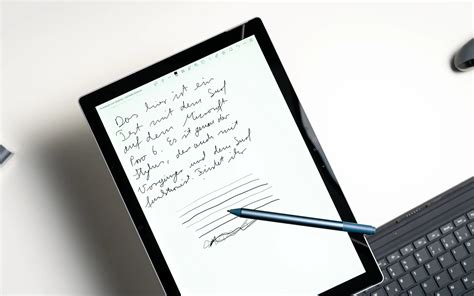 Das hier ist ein
Test mit dem Surf
auf dem Microsoft
Pro 6. Es ist genau der
Stylus, der auch mit
Vorgänge und dem Surf
funktioniert. Findet ihr